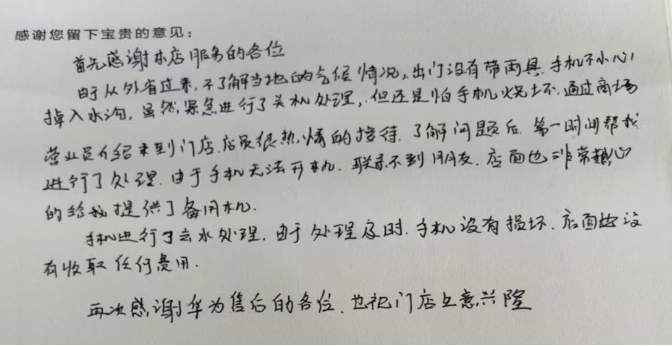 感谢您留下宝贵的意见：
首先感谢本店服务的各位
由于从外省过来，不了解当地的气候情况，出门没有带雨具，手机不小心
掉入水沟，虽然紧急进行了关机处理，但还是怕手机烧坏，通过商场
营业员介绍来到门店，店员很热情的接待，了解问题后，第一时间帮我
进行了处理，由于手机无法开机，联系不到朋友，店面也非常热心
的给我提供了备用机．
手机进行了去水处理，由于处理及时，手机没有损坏，店面也没
有收取任何费用．
再次感谢华为售后的各位，也祝门店生意兴隆